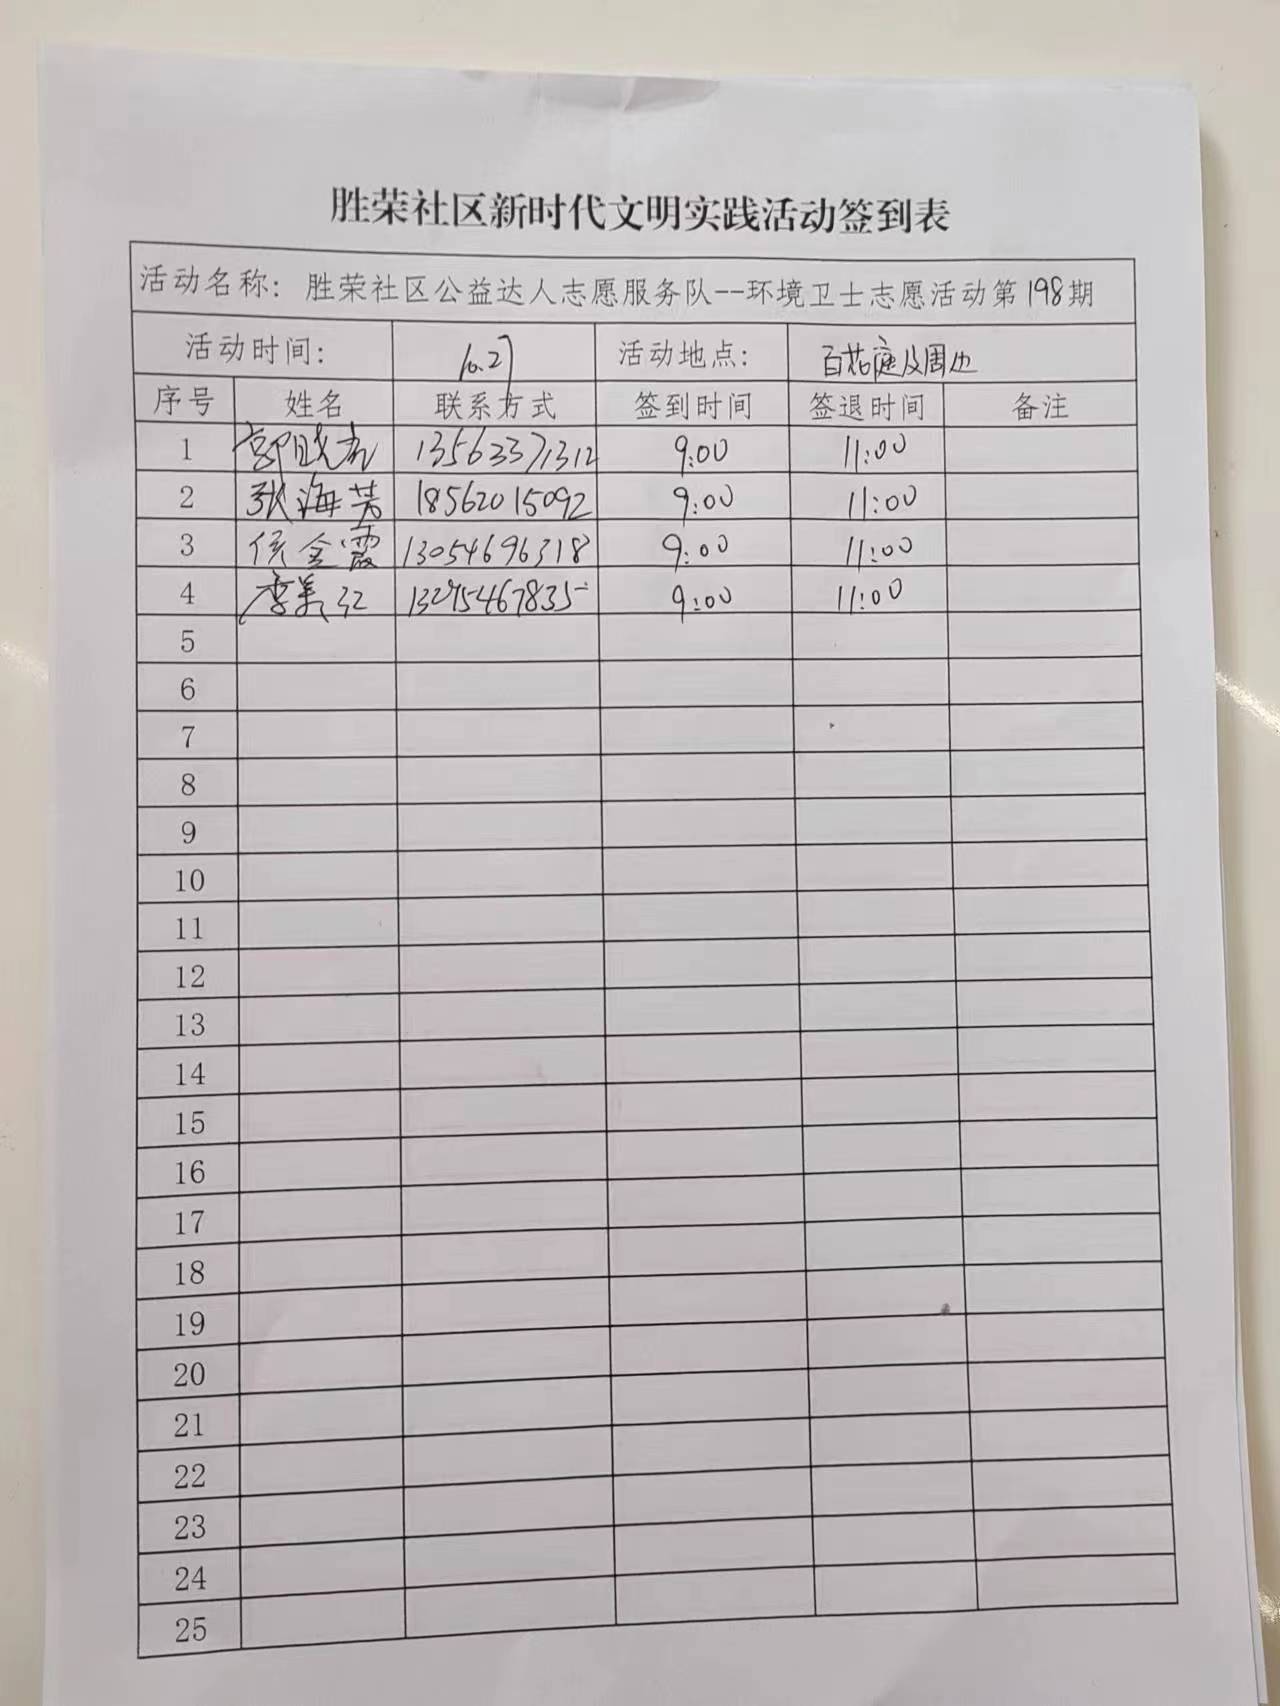 胜荣社区新时代文明实践活动签到表
活动名称：胜荣社区公益达人志愿服务队--环境卫士志愿活动第198期
活动时间： 10.27 活动地点： 百花庭及周边
序号 姓名 联系方式 签到时间 签退时间 备注
1 郭晓 13563371312 9:00 11:00
2 张海芳 18562015092 9:00 11:00
3 侯金霞 13054696318 9:00 11:00
4 李美红 13295467835 9:00 11:00
5
6
7
8
9
10
11
12
13
14
15
16
17
18
19
20
21
22
23
24
25